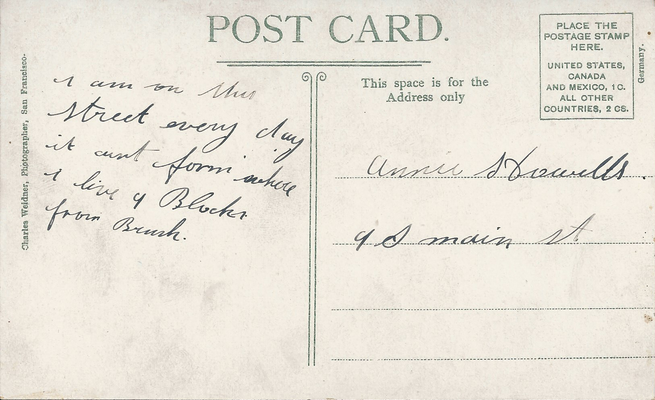 POST CARD.
PLACE THE
POSTAGE STAMP
HERE.
UNITED STATES,
CANADA
AND MEXICO, 1 C.
ALL OTHER
COUNTRIES, 2 CS.
Germany.
Charles Weidner, Photographer, San Francisco.
This space is for the
Address only
I am on this
street every day
it aint form where
I live 9 Blocks
from Brush.
Annie Howells.
9 S main St